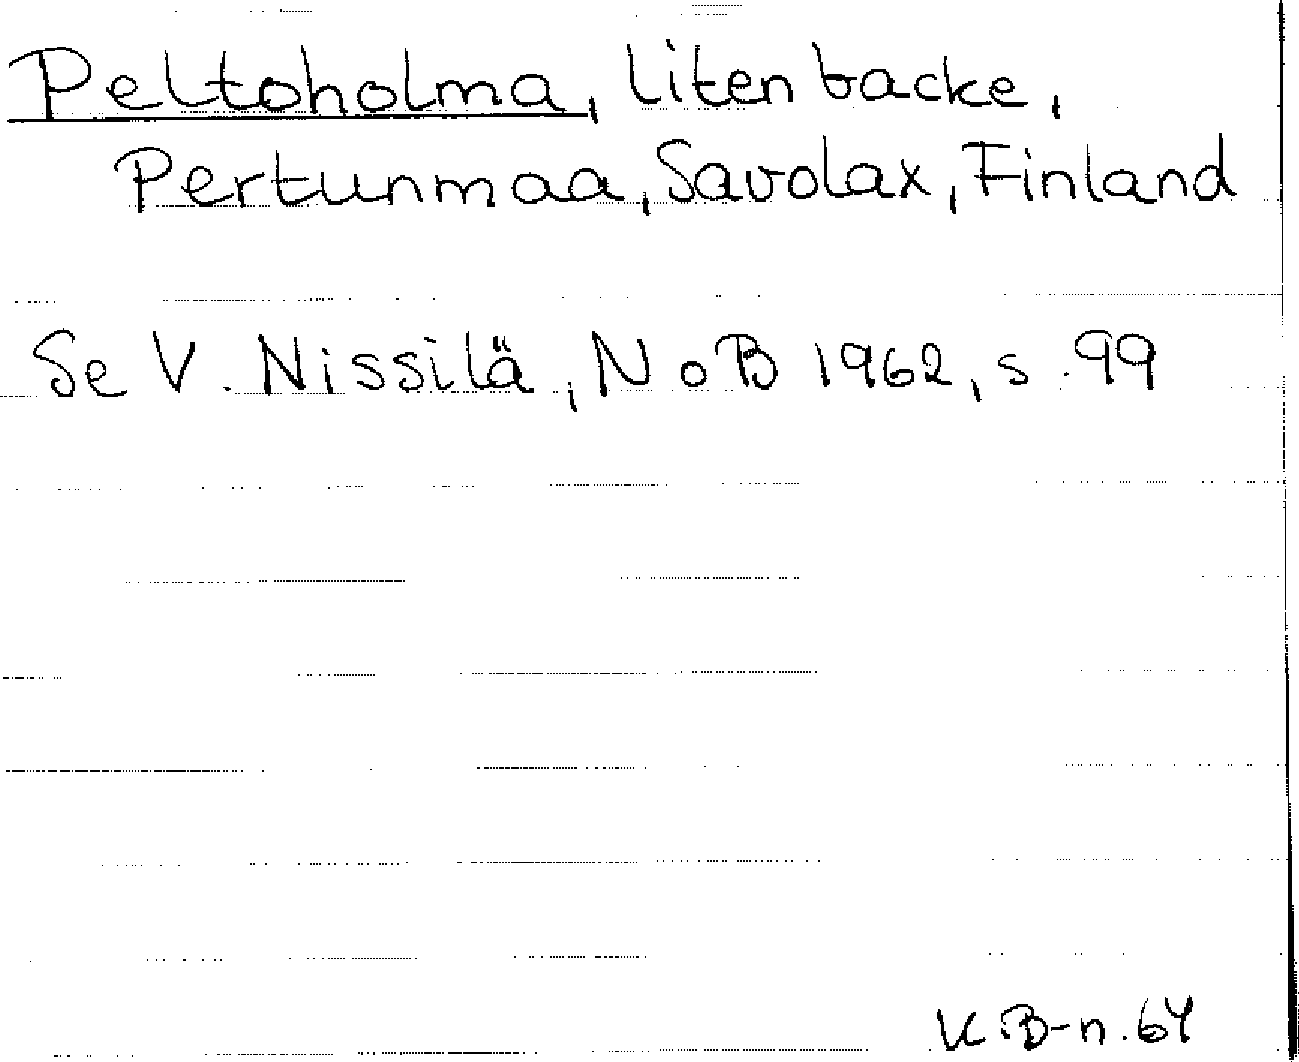 Peltoholma, liten backe,
Pertunmaa, Savolax, Finland
Se V. Nissilä, NoB 1962, s. 99
K.B-n. 64